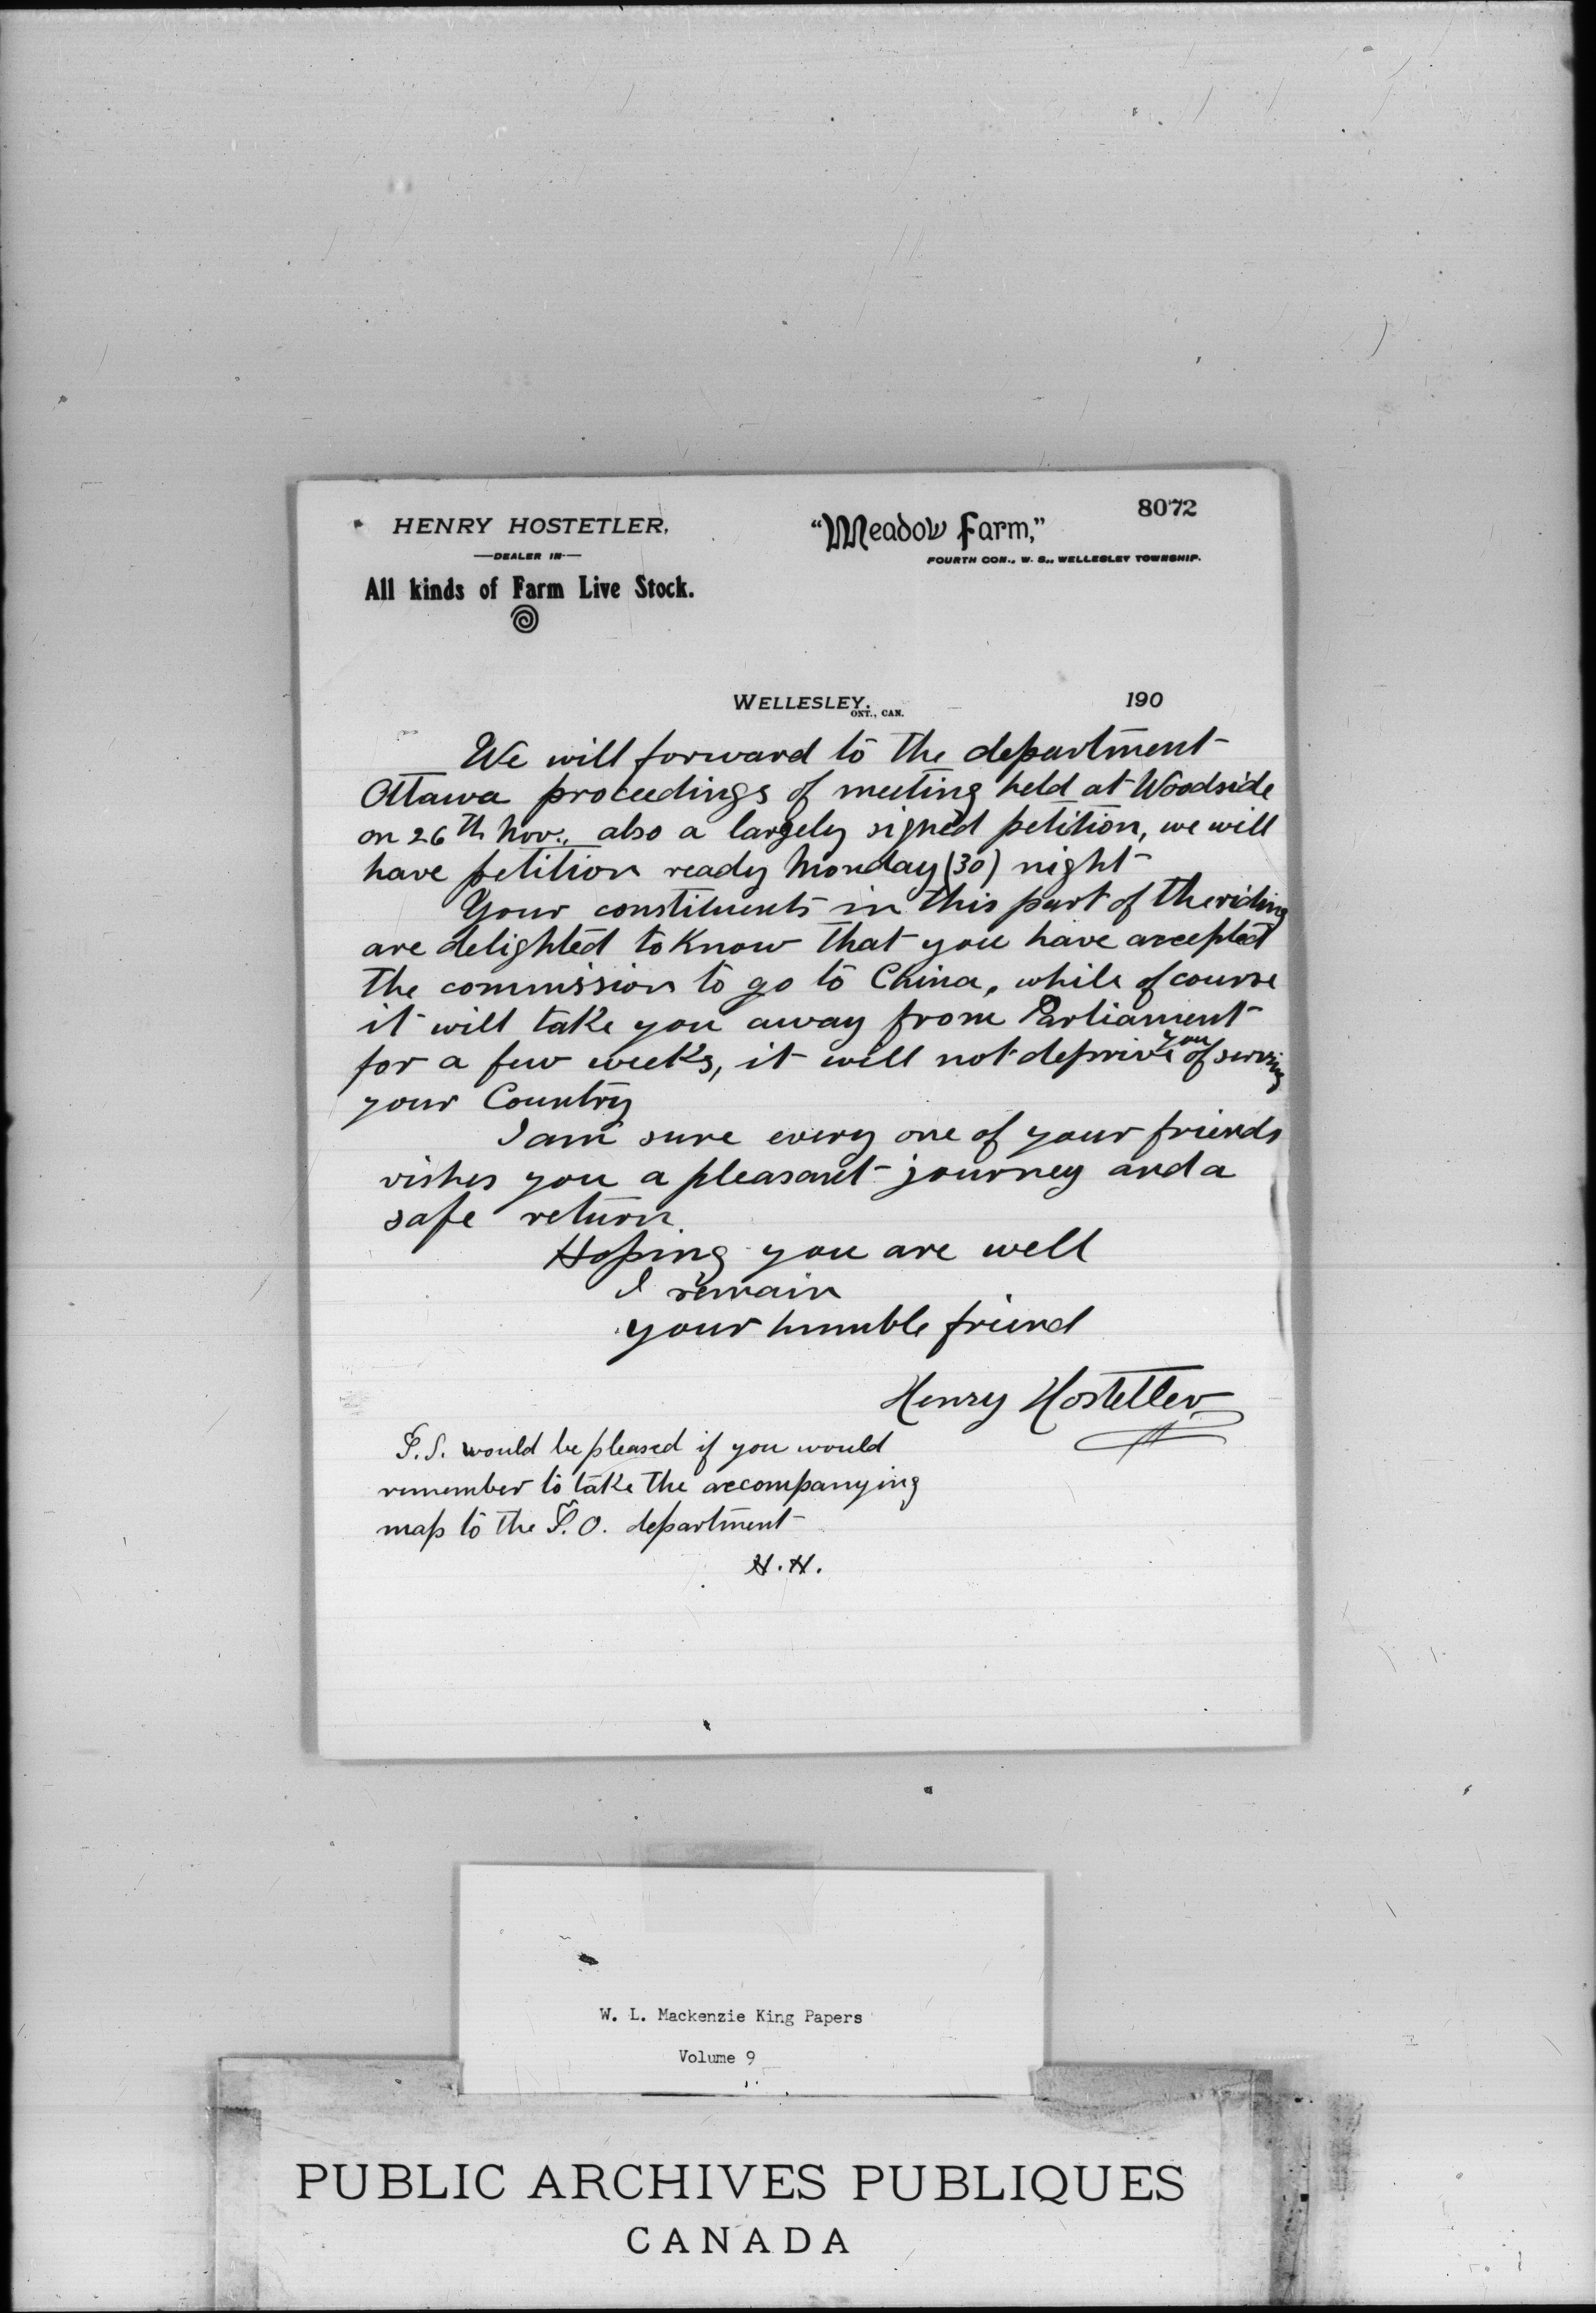 8072
HENRY HOSTETLER,
—DEALER IN—
All kinds of Farm Live Stock.
"Meadow Farm,"
FOURTH CON., W. S., WELLESLEY TOWNSHIP.
WELLESLEY, ONT., CAN. 190
We will forward to the department
Ottawa proceedings of meeting held at Woodside
on 26th Nov., also a largely signed petition, we will
have petition ready Monday (30) night
Your constituents in this part of the riding
are delighted to know that you have accepted
the commission to go to China, while of course
it will take you away from Parliament
for a few weeks, it will not deprive you of serving
your Country
I am sure every one of your friends
wishes you a pleasant journey and a
safe return.
Hoping you are well
I remain
your humble friend
Henry Hostetler
P.S. would be pleased if you would
remember to take the accompanying
map to the P.O. department
H.H.
W. L. Mackenzie King Papers
Volume 9
PUBLIC ARCHIVES PUBLIQUES
CANADA